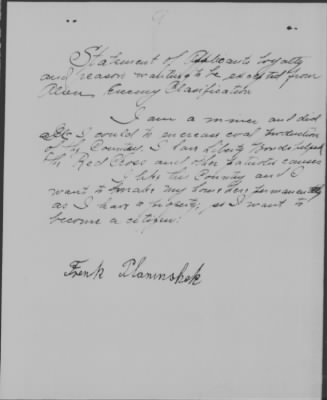 9
Statement of Aplicants loyalty
and reason wanting to be excepted from
Alien Enemy Clasification
I am a miner and did
all I could to increase coal production
of the Country. I ban Liberty Bonds helped
the Red Cross and other patriotic causes
I like this Country and I
want to make my home here permanently
as I have a property; as I want to
become a citizen.
Frenk Planinshek